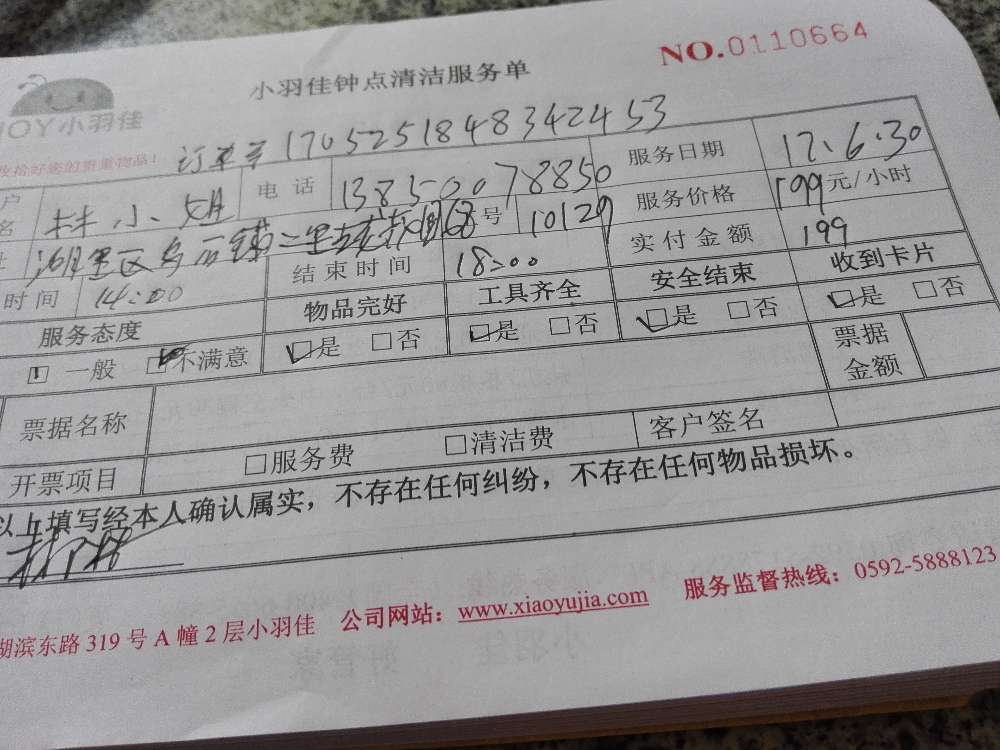 NO.0110664
小羽佳钟点清洁服务单
JOY小羽佳
收拾好您的贵重物品!
订单号 17052518483424453
户名 林小姐 电话 13850078850 服务日期 17.6.30
湖里区 号 10129 服务价格 199元/小时
时间 14:00 结束时间 18:00 实付金额 199
服务态度 物品完好 工具齐全 安全结束 收到卡片
□一般 □不满意 □是 □否 □是 □否 □是 □否 □是 □否
票据名称 票据金额
开票项目 □服务费 □清洁费 客户签名
以上填写经本人确认属实，不存在任何纠纷，不存在任何物品损坏。
湖滨东路319号A幢2层小羽佳 公司网站：www.xiaoyujia.com 服务监督热线：0592-5888123